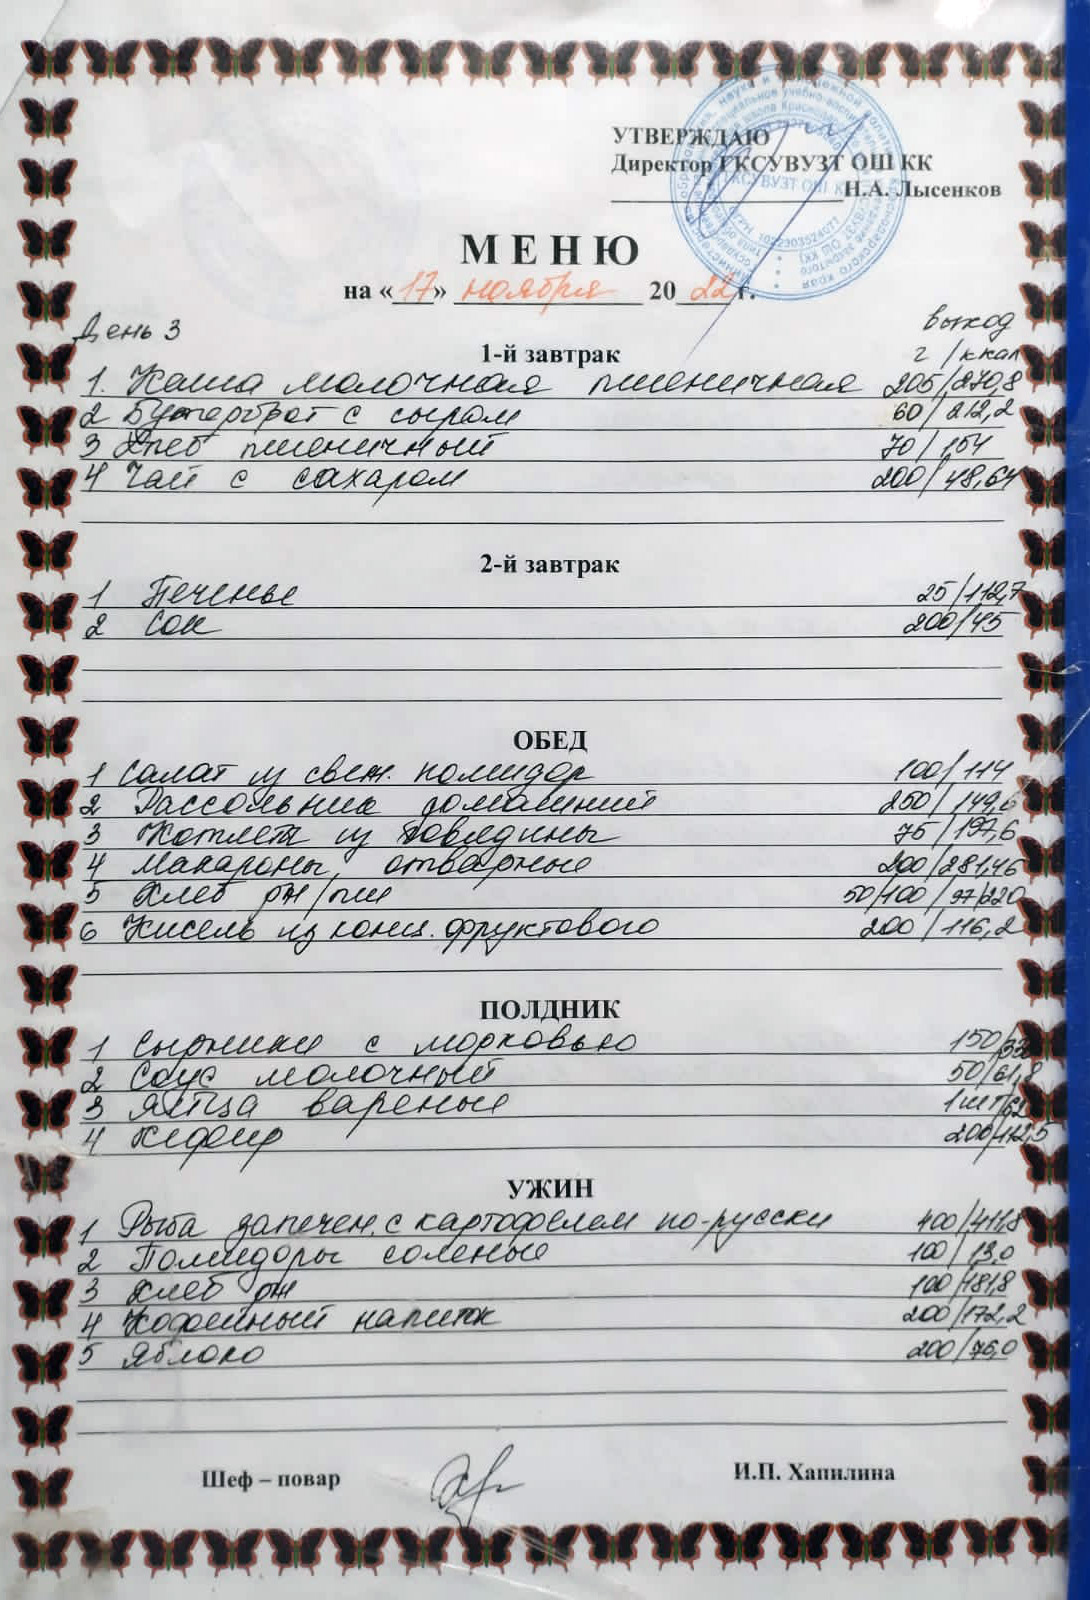 УТВЕРЖДАЮ
Директор ГКСУВУЗТ ОШ КК
Н.А. Лысенков
МЕНЮ
на «17» ноября 2022 г.
День 3 выход
1-й завтрак г/ккал
1. Каша молочная пшеничная 205/270,8
2 Бутерброт с сыром 60/212,2
3 Хлеб пшеничный 70/154
4 Чай с сахаром 200/48,64
2-й завтрак
1 Печенье 25/112,7
2 Сок 200/45
ОБЕД
1 Салат из свеж. помидор 100/114
2 Рассольник домашний 250/149,6
3 Котлета из говядины 75/197,6
4 Макароны отварные 200/281,46
5 Хлеб рж/пш 50/100/97/220
6 Кисель из конц. фруктового 200/116,2
ПОЛДНИК
1 Сырники с морковью 150/
2 Соус молочный 50/61,8
3 Яйца вареные 1шт/62
4 Кефир 200/112,5
УЖИН
1 Рыба запечен. с картофелем по-русски 400/411,8
2 Помидоры соленые 100/13,0
3 Хлеб рж 100/181,8
4 Кофейный напиток 200/172,2
5 Яблоко 200/76,0
Шеф – повар И.П. Хапилина